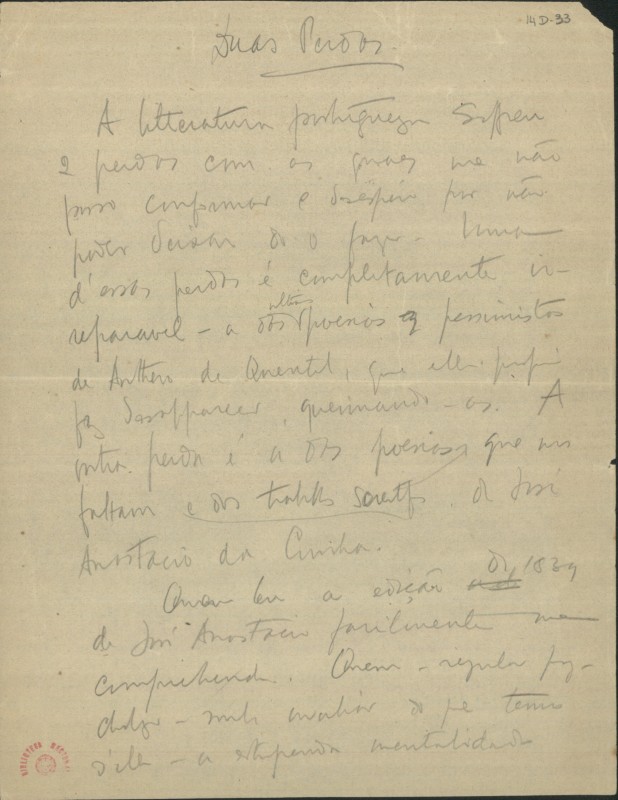 14D-33
Duas Perdas.
A litteratura portugueza soffreu
2 perdas com as quaes me não
posso conformar e por não
poder deixar de o fazer. Uma
d'essas perdas é completamente ir-
reparavel – a das ultimas poesias pessimistas
de Anthero de Quental, que elle proprio
fez desapparecer, queimando-as. A
outra perda é a das poesias, que nos
faltam e dos trabalhos de José
Anastacio da Cunha.
Quem leu a edição de 1839
de José Anastacio facilmente me
comprehende. Quem –
– avaliar do que temos
d'elle – a estupenda mentalidade
BIBLIOTECA NACIONAL